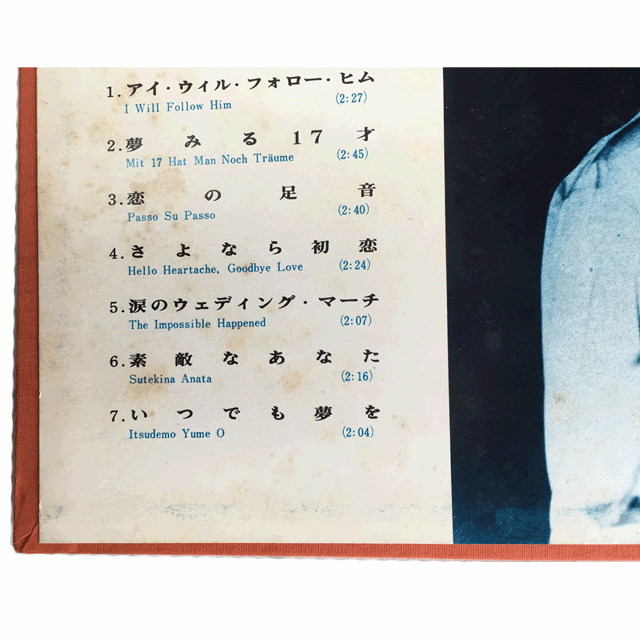 1.アイ・ウィル・フォロー・ヒム
I Will Follow Him (2:27)
2.夢みる17才
Mit 17 Hat Man Noch Träume (2:45)
3.恋の足音
Passo Su Passo (2:40)
4.さよなら初恋
Hello Heartache, Goodbye Love (2:24)
5.涙のウェディング・マーチ
The Impossible Happened (2:07)
6.素敵なあなた
Sutekina Anata (2:16)
7.いつでも夢を
Itsudemo Yume O (2:04)